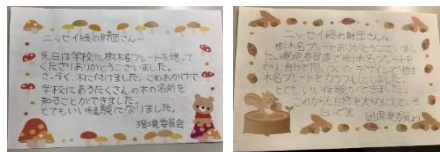 ニッセイ緑の財団さんへ
先日は学校に樹木名プレートを送って
くださりありがとうございました。
さっそく木に付けました。このおかげで
学校にあるたくさんの木の名前を
知ることができました。
とてもいい経験になりました。
環境委員会
ニッセイ緑の財団さんへ
樹木名プレートありがとうございまし
た。環境委員
樹
木名プレートをカラフルにしました。
とてもいい体験ができました。
これからも自然を大切にしていき
たいです。
環境委員会より